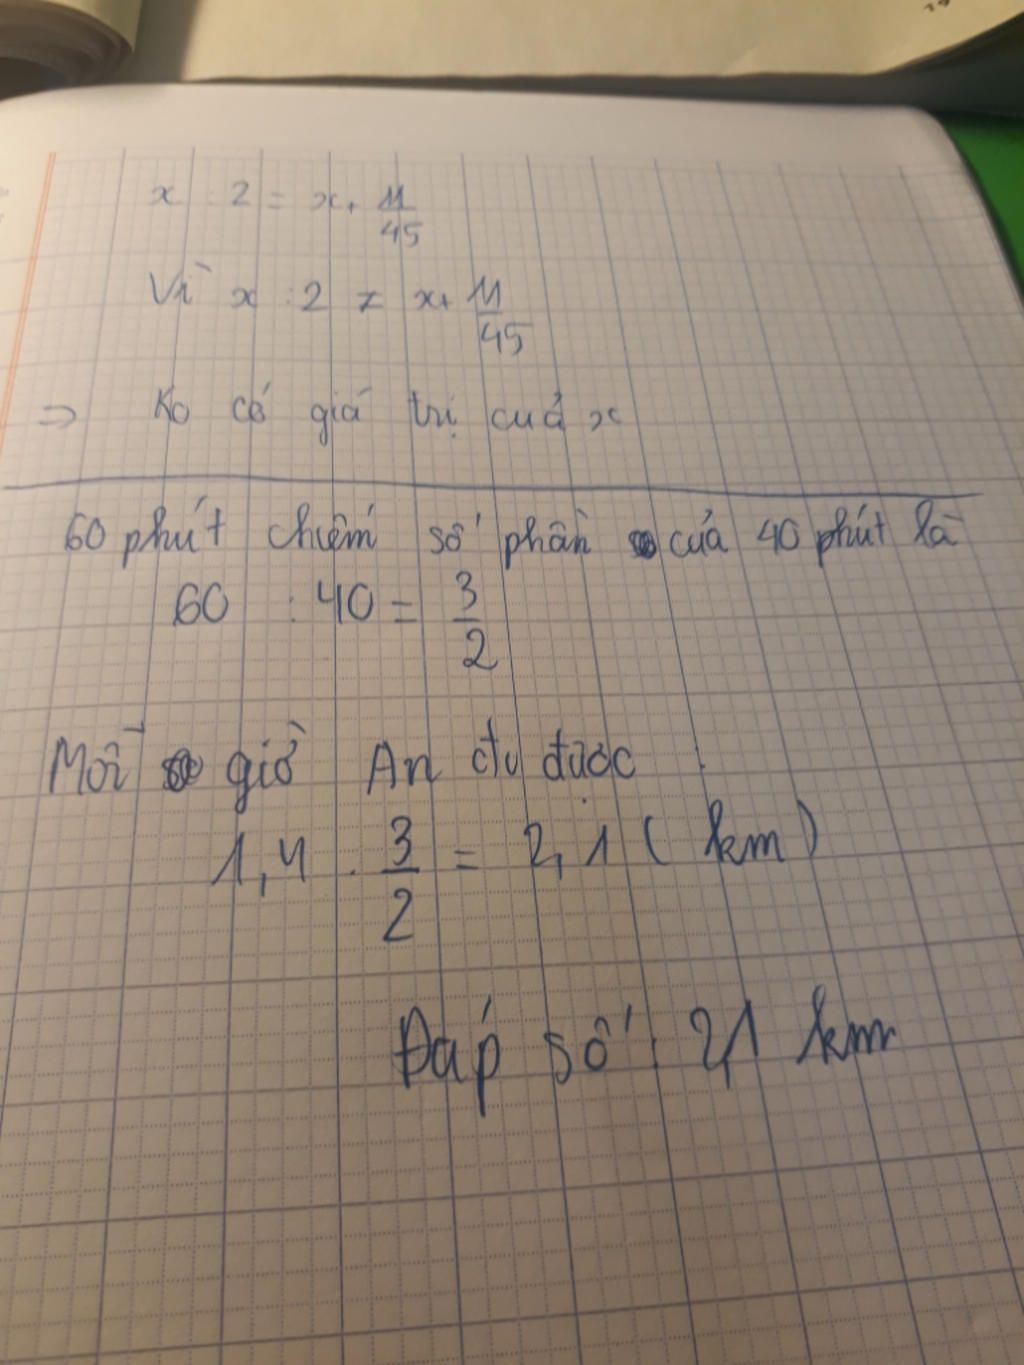 x : 2 = x + 11/45
Vì x : 2 ≠ x + 11/45
=> Ko có giá trị của x
60 phút chiếm số phần của 40 phút là
60 : 40 = 3/2
Mỗi giờ An đi được
1,4 . 3/2 = 2,1 (km)
Đáp số : 2,1 km